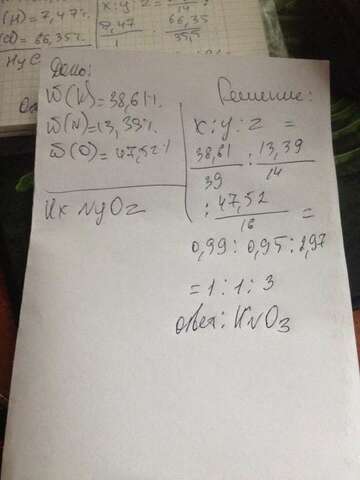 (H) = 7,47%
= 66,35%
x:y:z =
7,47
1
14
66,35
35,5
Дано:
W(K) = 38,61%
W(N) = 13,39%
W(O) = 47,52%
Kx NyOz
Решение:
x:y:z =
38,61 : 13,39
39 14
: 47,52 =
16
0,99 : 0,95 : 2,97
= 1:1:3
ответ: KNO3